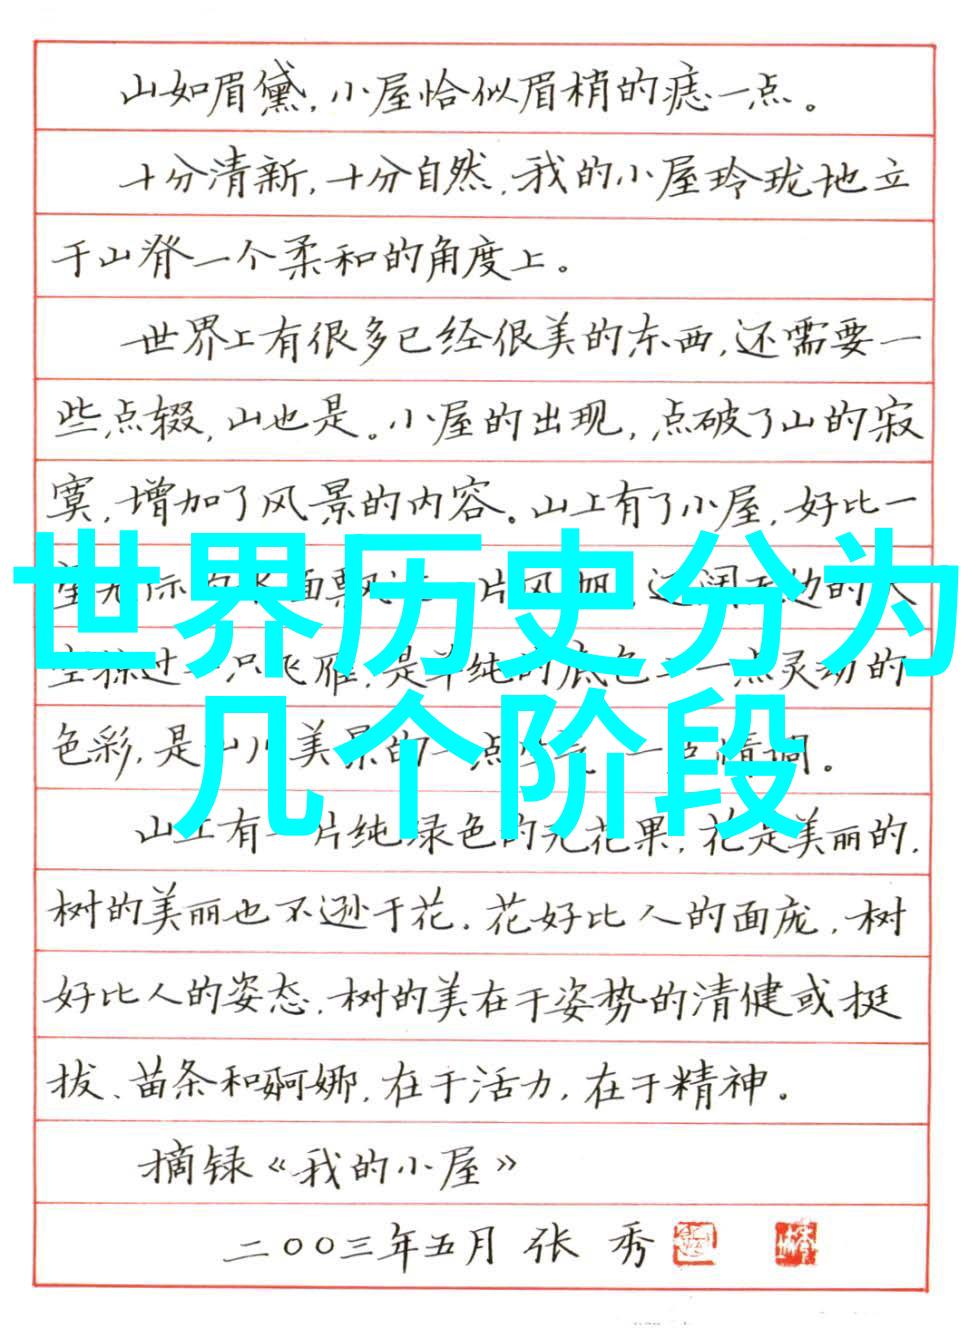 山如眉黛，小屋恰似眉梢的痣一点。
十分清新，十分自然，我的小屋玲珑地立
于山脊一个柔和的角度上。
世界上有很多已经很美的东西，还需要一
些点缀，山也是。小屋的出现，点破了山的寂
寞，增加了风景的内容。山上有了小屋，好比一
望无际的水面飘过一片风帆，辽阔无边的天
世界历史分为
空掠过一只飞雁，是单纯的底色上一点灵动的
色彩，是山川美景的一点生气，一点情调。
几个阶段
山上有一片纯绿色的无花果，花是美丽的，
树的美丽也不逊于花。花好比人的面庞，树
好比人的姿态。树的美在于姿势的清健或挺
拔、苗条和婀娜，在于活力，在于精神。
摘录《我的小屋》
二〇〇三年五月 张 秀